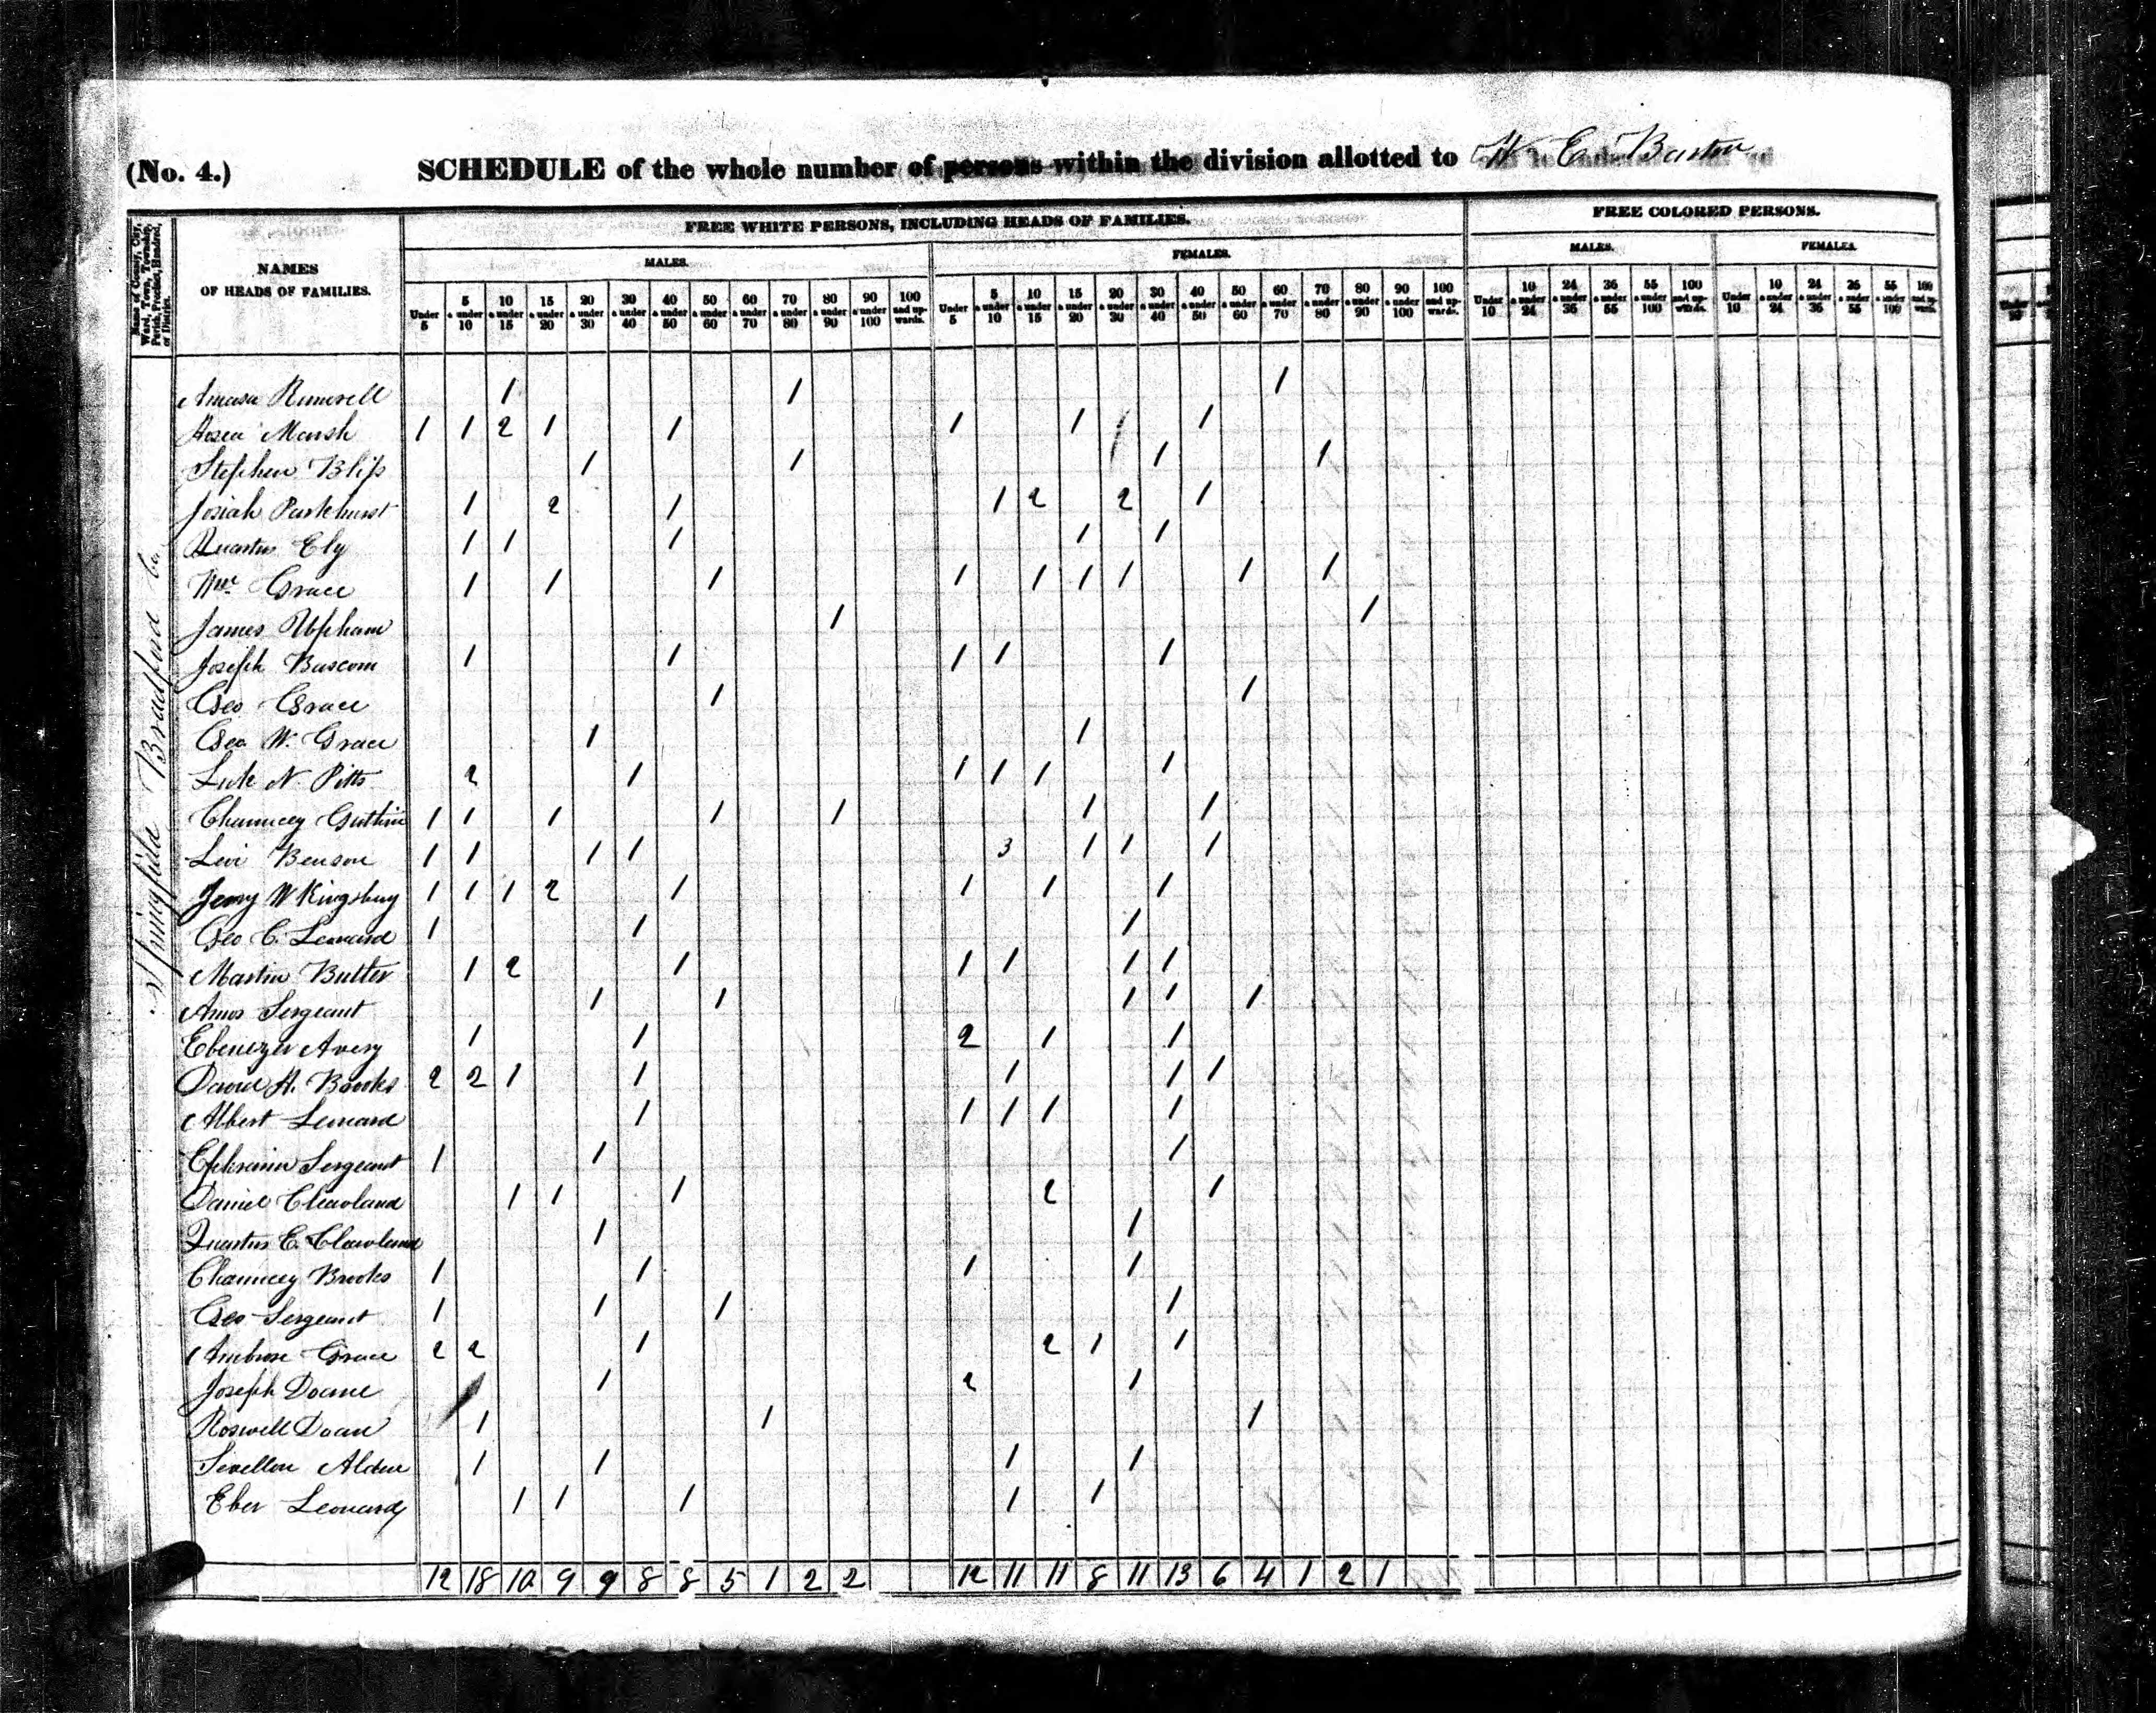 (No. 4.) SCHEDULE of the whole number of persons within the division allotted to W. C. Barton
Name of County, City, Ward, Town, Township, Parish, Precinct, Hundred, or District.
NAMES OF HEADS OF FAMILIES.
FREE WHITE PERSONS, INCLUDING HEADS OF FAMILIES.
FREE COLORED PERSONS.
MALES. FEMALES. MALES. FEMALES.
Under 5 | 5 & under 10 | 10 & under 15 | 15 & under 20 | 20 & under 30 | 30 & under 40 | 40 & under 50 | 50 & under 60 | 60 & under 70 | 70 & under 80 | 80 & under 90 | 90 & under 100 | 100 and upwards.
Under 5 | 5 & under 10 | 10 & under 15 | 15 & under 20 | 20 & under 30 | 30 & under 40 | 40 & under 50 | 50 & under 60 | 60 & under 70 | 70 & under 80 | 80 & under 90 | 90 & under 100 | 100 and upwards.
Under 10 | 10 & under 24 | 24 & under 36 | 36 & under 55 | 55 & under 100 | 100 and upwards.
Under 10 | 10 & under 24 | 24 & under 36 | 36 & under 55 | 55 & under 100 | 100 and upwards.
Springfield Bradford Co.
Amasa 1 1 1
Hosea Marsh 1 1 2 1 1 1 1 1
Stephen Bliss 1 1 1 1
Josiah Parkhurst 1 2 1 1 2 2 1
Quartus Ely 1 1 1 1 1
Wm. Grace 1 1 1 1 1 1 1 1 1
James Upham 1 1
Joseph Bascom 1 1 1 1 1
Geo Grace 1 1
Geo W. Grace 1 1
Luke N. Pitts 2 1 1 1 1 1
Chauncey Guthrie 1 1 1 1 1 1 1
Levi Benson 1 1 1 1 3 1 1 1
Jerry W Kingsbury 1 1 1 2 1 1 1 1
Geo C. Leonard 1 1 1
Martin Butler 1 2 1 1 1 1 1
Amos Sergeant 1 1 1 1 1
Ebenezer Avery 1 1 2 1 1
David H. Brooks 2 2 1 1 1 1 1
Albert Leonard 1 1 1 1 1
Ephraim Sergeant 1 1 1
Daniel Cleavland 1 1 1 2 1
Quartus E. Cleavland 1 1
Chauncey Brooks 1 1 1 1
Geo Sergeant 1 1 1 1
Ambrose Grace 2 2 1 2 1 1
Joseph Doane 1 2 1
Roswell Doan 1 1 1
Alden 1 1 1 1
Eber Leonard 1 1 1 1 1
12 18 10 9 9 8 8 5 1 2 2 12 11 11 8 11 13 6 4 1 2 1